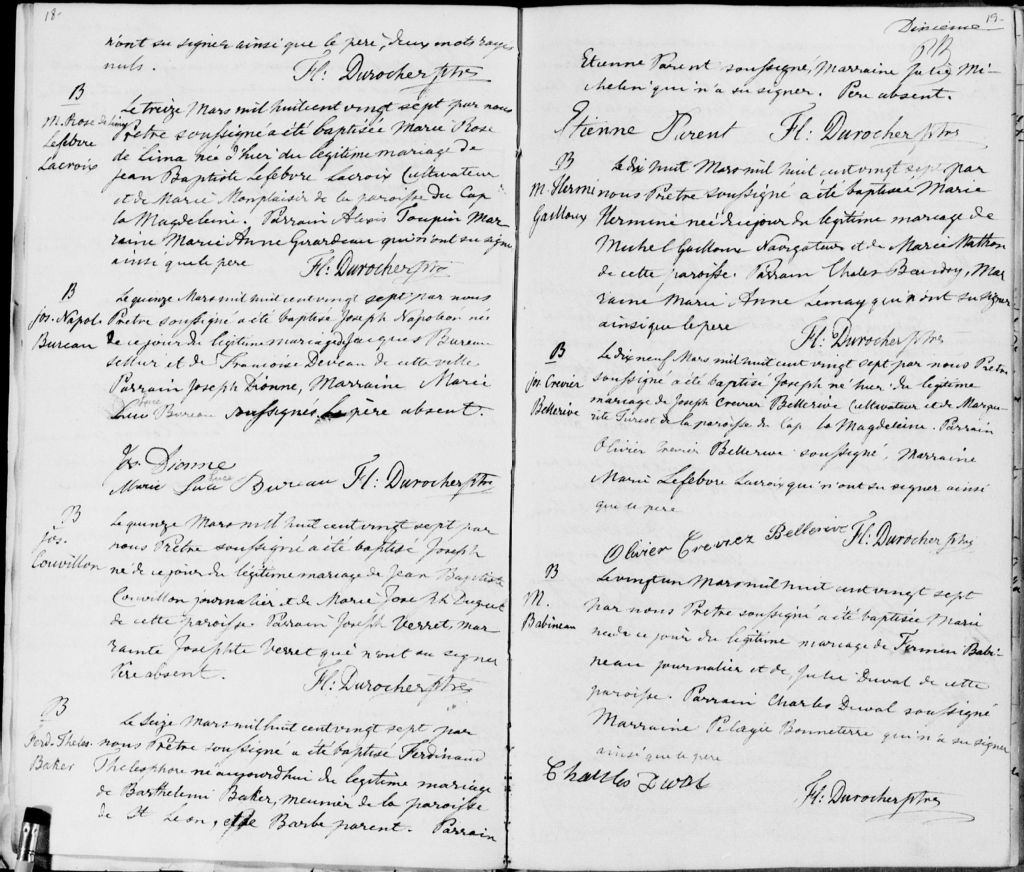 18-
n'ont su signer ainsi que le père, deux mots rayés
nuls.
Fl: Durocher ptre
B
M. Rose de Lima
Lefebvre
Lacroix
Le treize Mars mil huit cent vingt sept par nous
Prêtre soussigné a été baptisée Marie Rose
de Lima née d'hier du légitime mariage de
Jean Baptiste Lefebvre Lacroix Cultivateur
et de Marie Monplaisir de la paroisse du Cap
la Magdeleine. Parrain Alexis Toupin Mar
raine Marie Anne Girardeau qui n'ont su signer
ainsi que le père
Fl: Durocher ptre
B
Jos. Napol.
Bureau
Le quinze Mars mil huit cent vingt sept par nous
Prêtre soussigné a été baptisé Joseph Napoléon né
de ce jour du légitime mariage de Jacques Bureau
et de Françoise Deveau de cette ville
Parrain Joseph Dionne, Marraine Marie
Luce
Luce Bureau soussignés. Le père absent.
Jos. Dionne
Marie Luce Bureau Fl: Durocher ptre
Luce
B
Jos.
Couvillon
Le quinze Mars mil huit cent vingt sept par
nous Prêtre soussigné a été baptisé Joseph
né de ce jour du légitime mariage de Jean Baptiste
Couvillon journalier et de Marie Joseph Duguet
de cette paroisse. Parrain Joseph Verret, mar
raine Josephte Verret qui n'ont su signer
Père absent.
Fl: Durocher ptre
B
Ferd. Theles.
Baker
Le Seize Mars mil huit cent vingt sept par
nous Prêtre soussigné a été baptisé Ferdinand
Thelesphore né aujourd'hui du légitime mariage
de Barthelemi Baker, meunier de la paroisse
de St Leon, et de Barbe parent. Parrain
19-
Dixième
Etienne Parent soussigné, Marraine Julie Mi-
chelin qui n'a su signer. Père absent.
Etienne Parent Fl: Durocher ptre
B
M. Hermi
Gailloux
Le dix huit Mars mil huit cent vingt sept par
nous Prêtre soussigné a été baptisée Marie
Hermine née de ce jour du légitime mariage de
Michel Gailloux Navigateur et de Marie Mathon
de cette paroisse. Parrain Chales Beaudry, Mar
raine Marie Anne Lemay qui n'ont su signer
ainsi que le père
Fl: Durocher ptre
B
Jos Crevier
Bellerive
Le dix neuf Mars mil huit cent vingt sept par nous Prêtre
soussigné a été baptisé Joseph né hier du légitime
mariage de Joseph Crevier Bellerive Cultivateur et de Margue-
rite de la paroisse du Cap la Magdeleine. Parrain
Olivier Crevier Bellerive soussigné, Marraine
Marie Lefebvre Lacroix qui n'ont su signer ainsi
que le père
Olivier Crevier Bellerive Fl: Durocher ptre
B
M.
Babineau
Le vingt un Mars mil huit cent vingt sept
par nous Prêtre soussigné a été baptisée Marie
née de ce jour du légitime mariage de Firmin Babi-
neau journalier et de Julie Duval de cette
paroisse. Parrain Charles Duval soussigné
Marraine Pélagie Bonneterre qui n'a su signer
ainsi que le père
Challes Dwal
Fl: Durocher ptre